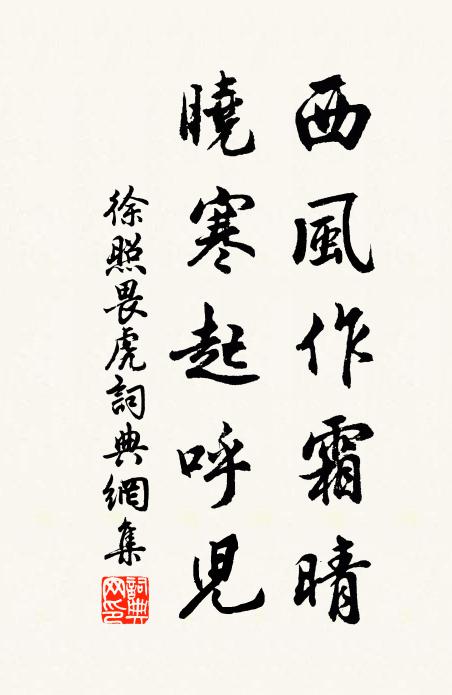 西風作霜晴
曉寒起呼兒
徐照畏虎詞典網集
詞典網印